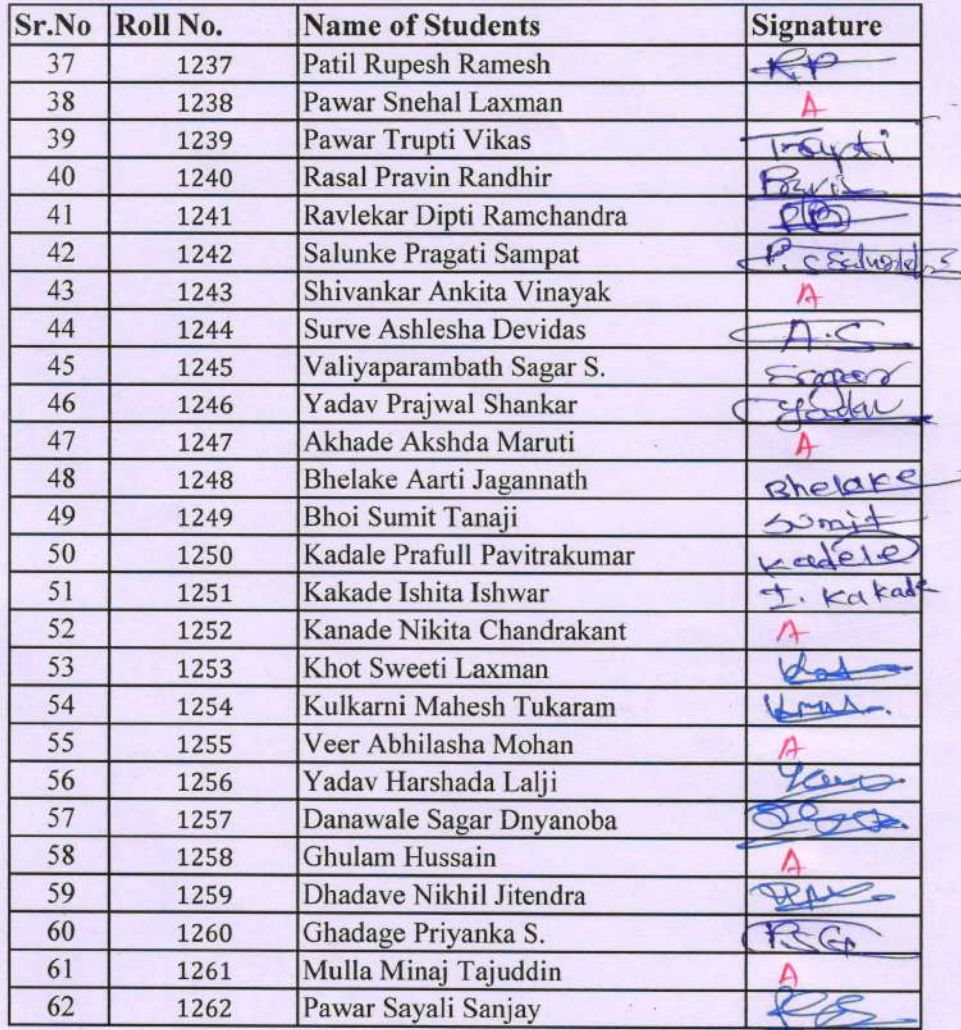 Sr.No Roll No. Name of Students Signature
37 1237 Patil Rupesh Ramesh R.P
38 1238 Pawar Snehal Laxman A
39 1239 Pawar Trupti Vikas Trupti
40 1240 Rasal Pravin Randhir
41 1241 Ravlekar Dipti Ramchandra
42 1242 Salunke Pragati Sampat
43 1243 Shivankar Ankita Vinayak A
44 1244 Surve Ashlesha Devidas A.S
45 1245 Valiyaparambath Sagar S.
46 1246 Yadav Prajwal Shankar Yadav
47 1247 Akhade Akshda Maruti A
48 1248 Bhelake Aarti Jagannath Bhelake
49 1249 Bhoi Sumit Tanaji Sumit
50 1250 Kadale Prafull Pavitrakumar Kadele
51 1251 Kakade Ishita Ishwar I. Kakade
52 1252 Kanade Nikita Chandrakant A
53 1253 Khot Sweeti Laxman
54 1254 Kulkarni Mahesh Tukaram
55 1255 Veer Abhilasha Mohan A
56 1256 Yadav Harshada Lalji
57 1257 Danawale Sagar Dnyanoba
58 1258 Ghulam Hussain A
59 1259 Dhadave Nikhil Jitendra
60 1260 Ghadage Priyanka S. PSG
61 1261 Mulla Minaj Tajuddin A
62 1262 Pawar Sayali Sanjay